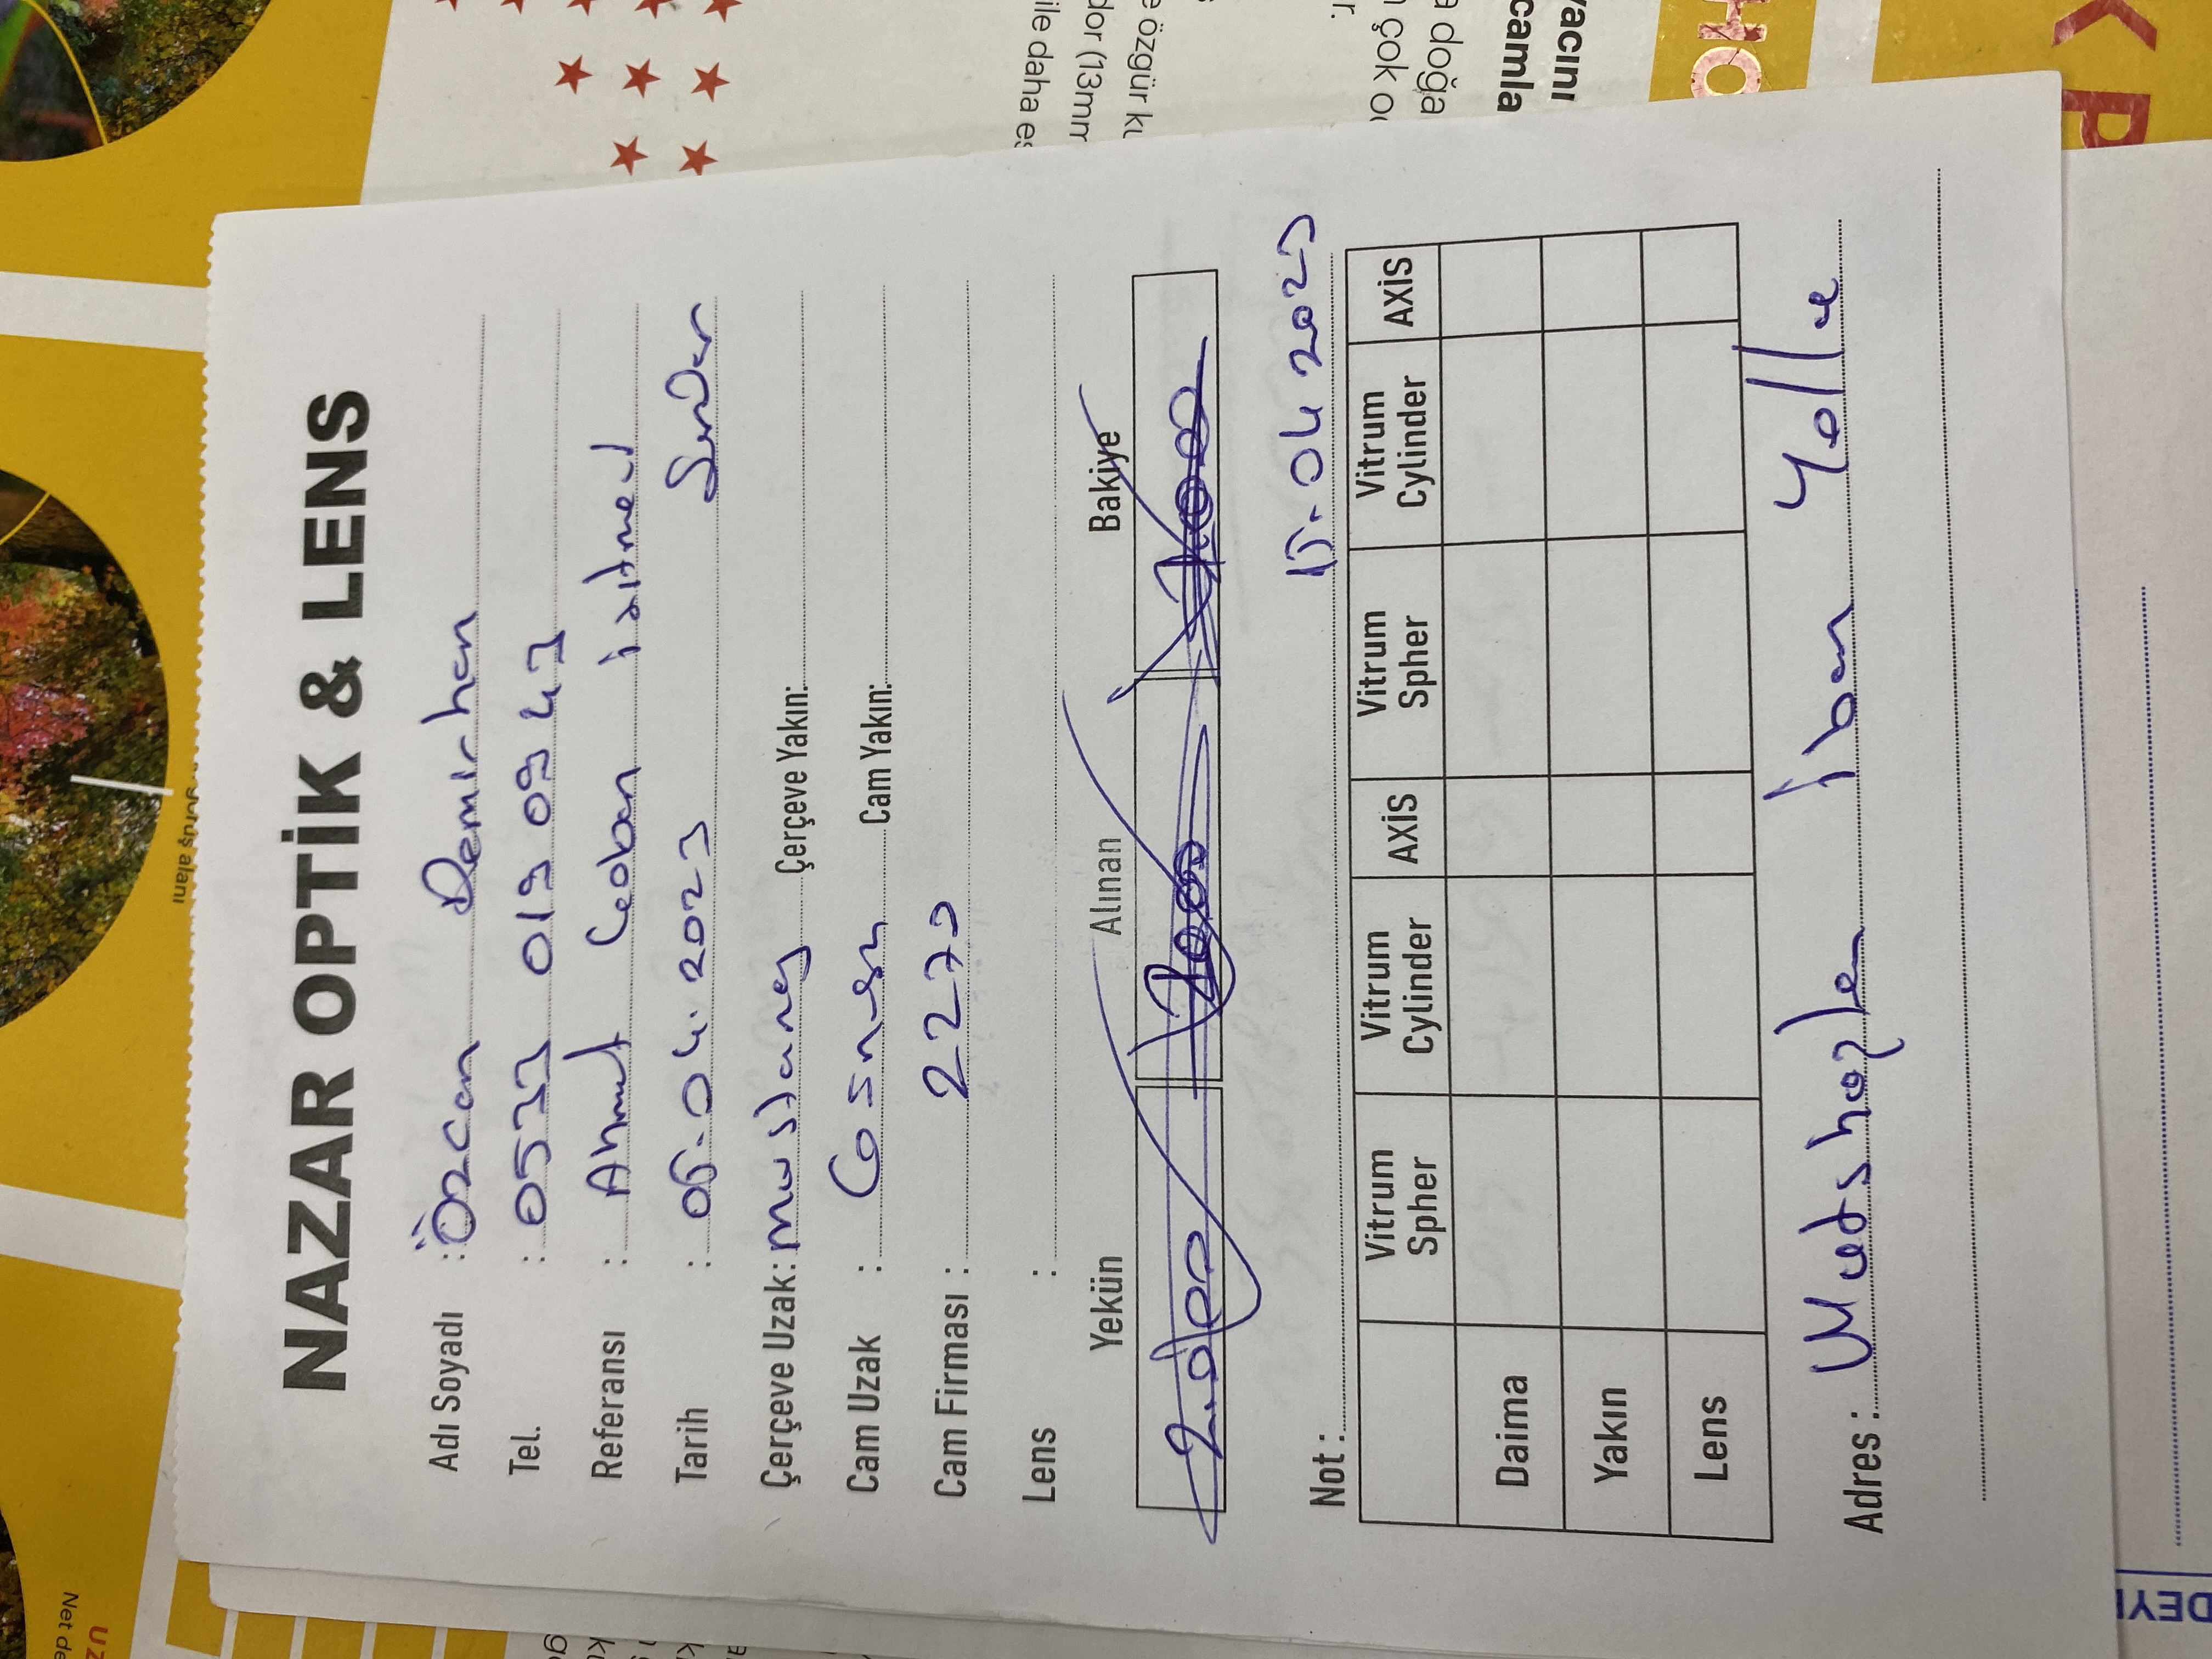 Net de
UZ
görüş alanı
NAZAR OPTİK & LENS
Adı Soyadı : Özcan Demirhan
Tel. : 0533 019 09 43
Referansı : Ahmet Çoban
Tarih : 05.04.2023 Serdar
Çerçeve Uzak: Mustang Çerçeve Yakın:
Cam Uzak : Cam Yakın:
Cam Firması : 2270
Lens :
Yekün Alınan Bakiye
2.000 1000
Not : 15.04 2023
Vitrum Spher Vitrum Cylinder AXİS Vitrum Spher Vitrum Cylinder AXİS
Daima
Yakın
Lens
Adres : İban Yolla
ile daha es
dor (13mm
e özgür ku
n çok
a doğa
camla
yacını
DEYİ